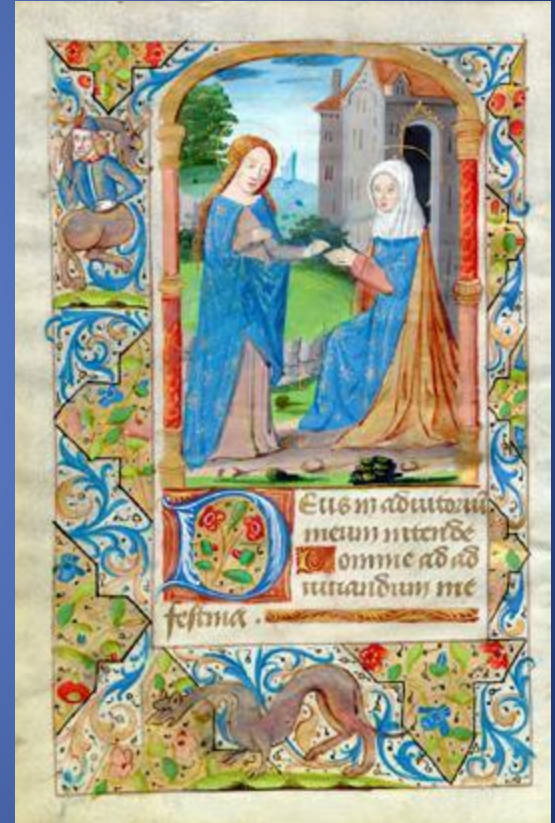 Deus in adiutoriu
meum intende
Domine ad ad
iuuandum me
festina .